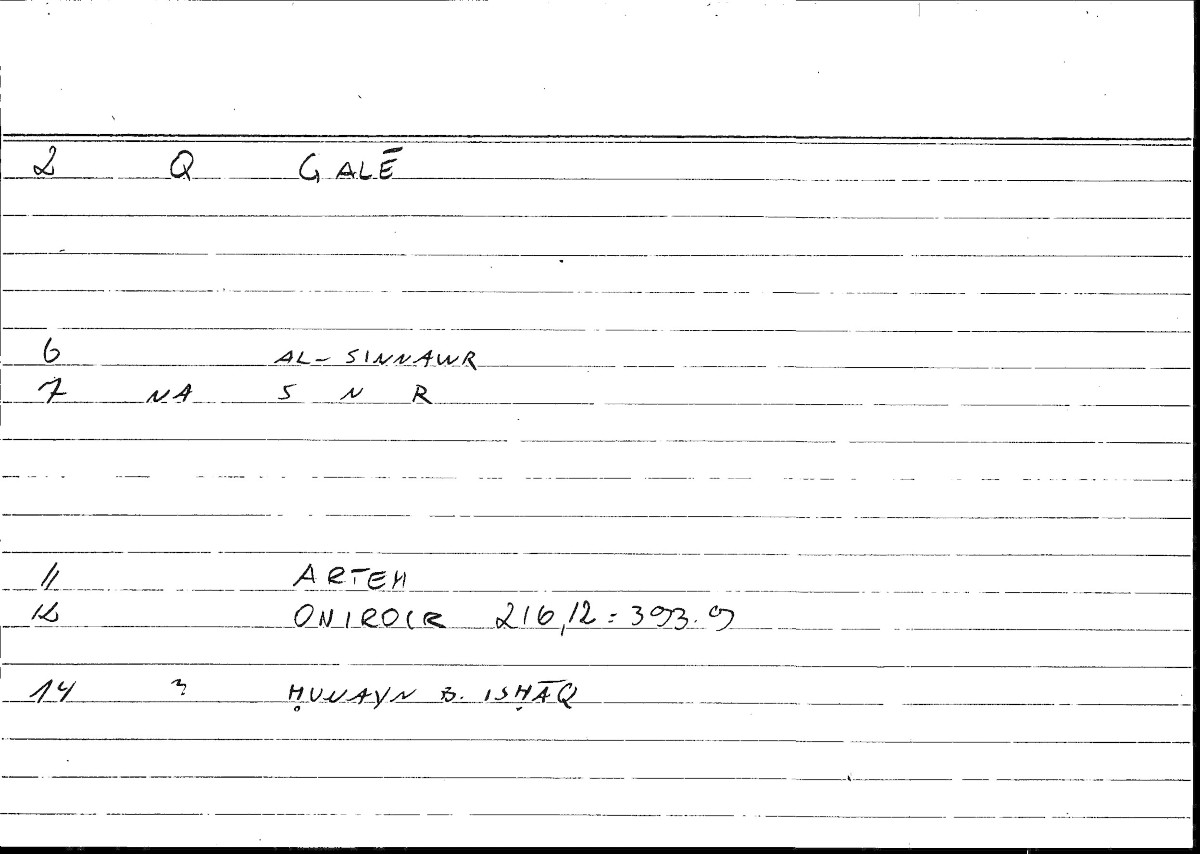 2 Q GALĒ
6 AL-SINNAWR
7 NA S N R
11 ARTEM
12 ONIROCR 216,12 = 393.9
14 3 ḤUNAYN B. ISḤĀQ